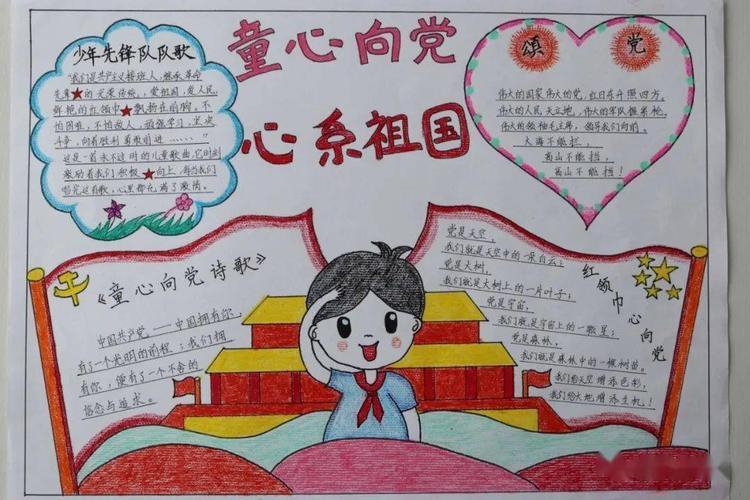 童心向党
心系祖国
少年先锋队队歌
"我们是共产主义接班人,继承革命
先辈的光荣传统,爱祖国,爱人民
鲜艳的红领巾飘扬在前胸。不怕
困难,不怕敌人,顽强学习,坚决
斗争,向着胜利勇敢前进……"
这是一首永不过时的儿童歌曲,它时刻
激励着我们积极向上,每当我们
唱完这首歌,心里都充满了激情。
颂党
伟大的国家伟大的党,红日东升照四方。
伟大的人民天立地,伟大的军队握紧枪。
伟大的领袖毛主席,领导我们向前。
大海不能拦,
高山不能挡!
高山不能挡!
《童心向党诗歌》
中国共产党——中国拥有你,
有了一个光明的前程;我们拥
有你,便有了一个不舍的
信念与追求。
红领巾心向党
党是天空,
我们就是天空中的一朵白云;
党是大树,
我们就是大树上的一片叶子;
党是宇宙,
我们就是宇宙上的一颗星;
党是森林,
我们就是森林中的一棵树苗。
我们给天空增添色彩,
我们给大地增添生机!